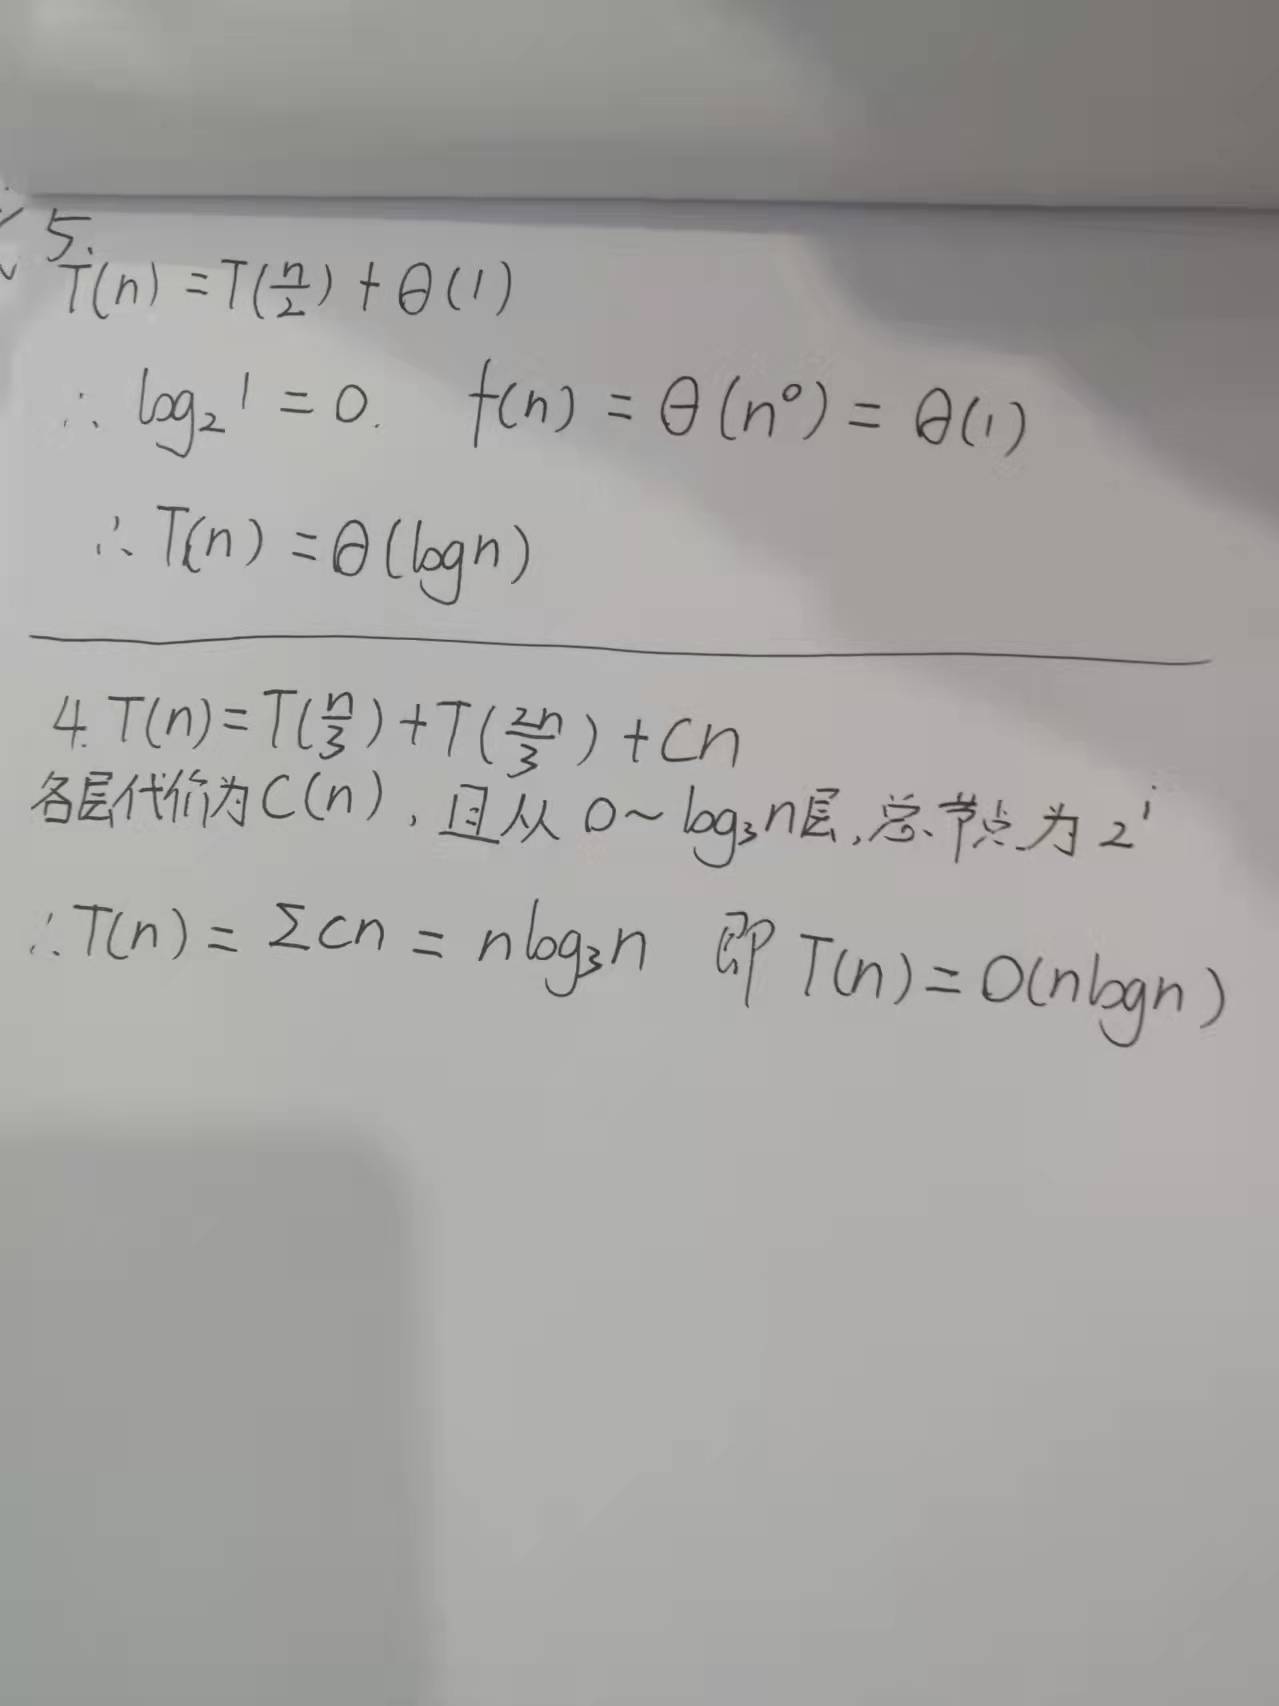 5.
T(n) = T(n/2) + θ(1)
∴ log₂1 = 0. f(n) = θ(n⁰) = θ(1)
∴ T(n) = θ(logn)
4. T(n) = T(n/3) + T(2n/3) + Cn
各层代价为C(n),且从0~log₃n层,总节点为2ⁱ
∴ T(n) = Σcn = nlog₃n 即 T(n) = O(nlogn)